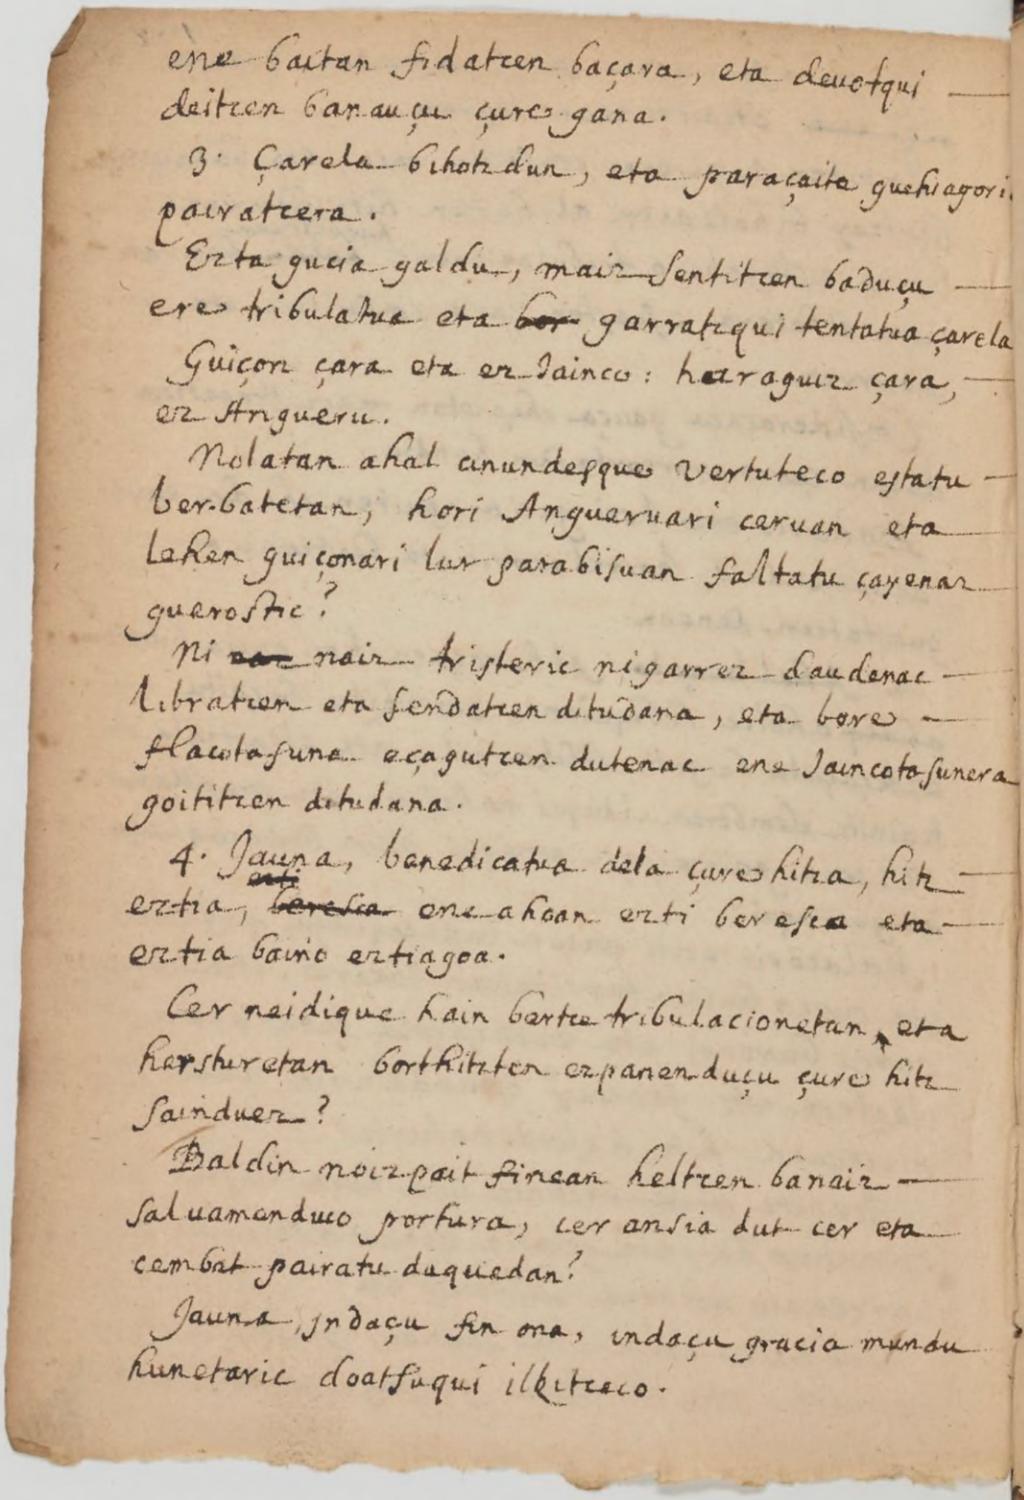 ene baitan fidatcen baçara, eta deuotqui
deitcen banauçu çure gana.
3. Çarela bihotzdun, eta paraçaite guehiagori
pairatcera.
Ezta gucia galdu, maiz sentitcen baduçu
ere tribulatua eta bor garratzqui tentatua çarela
Guiçon çara eta ez Jainco: haraguiz çara,
ez Angueru.
Nolatan ahal cinundesque vertuteco estatu
ber-batetan, hori Angueruari ceruan eta
lehen guiçonari lur parabisuan faltatu çayenaz
gueroztic?
Ni naiz tristeric nigarrez daudenac
libratcen eta sendatcen ditudana, eta bere
flacotasuna eçagutcen dutenac ene Jaincotasunera
goititcen ditudana.
4. Jauna, benedicatua dela çure hitza, hitz
ezti
eztia, beresca ene ahoan ezti beresca eta
eztia baino eztiagoa.
Cer neidique hain bertce tribulacionetan, eta
hersturetan borthitzten ezpanenduçu çure hitz
sainduez?
Baldin noizpait finean heltcen banaiz
saluamenduco portura, cer ansia dut cer eta
cembat pairatu duquedan?
Jauna, indaçu fin ona, indaçu gracia mundu
hunetaric doatsuqui ilkitceco.